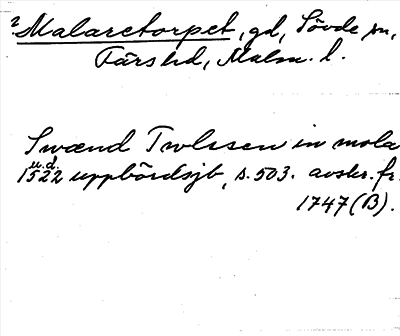 2 Malaretorpet, gd, Sövde sn,
Färs hd, Malm. l.
Swænd Twlssen in mola
u.d.
1522 uppbördsjb, s. 503. avskr. fr.
1747 (B).